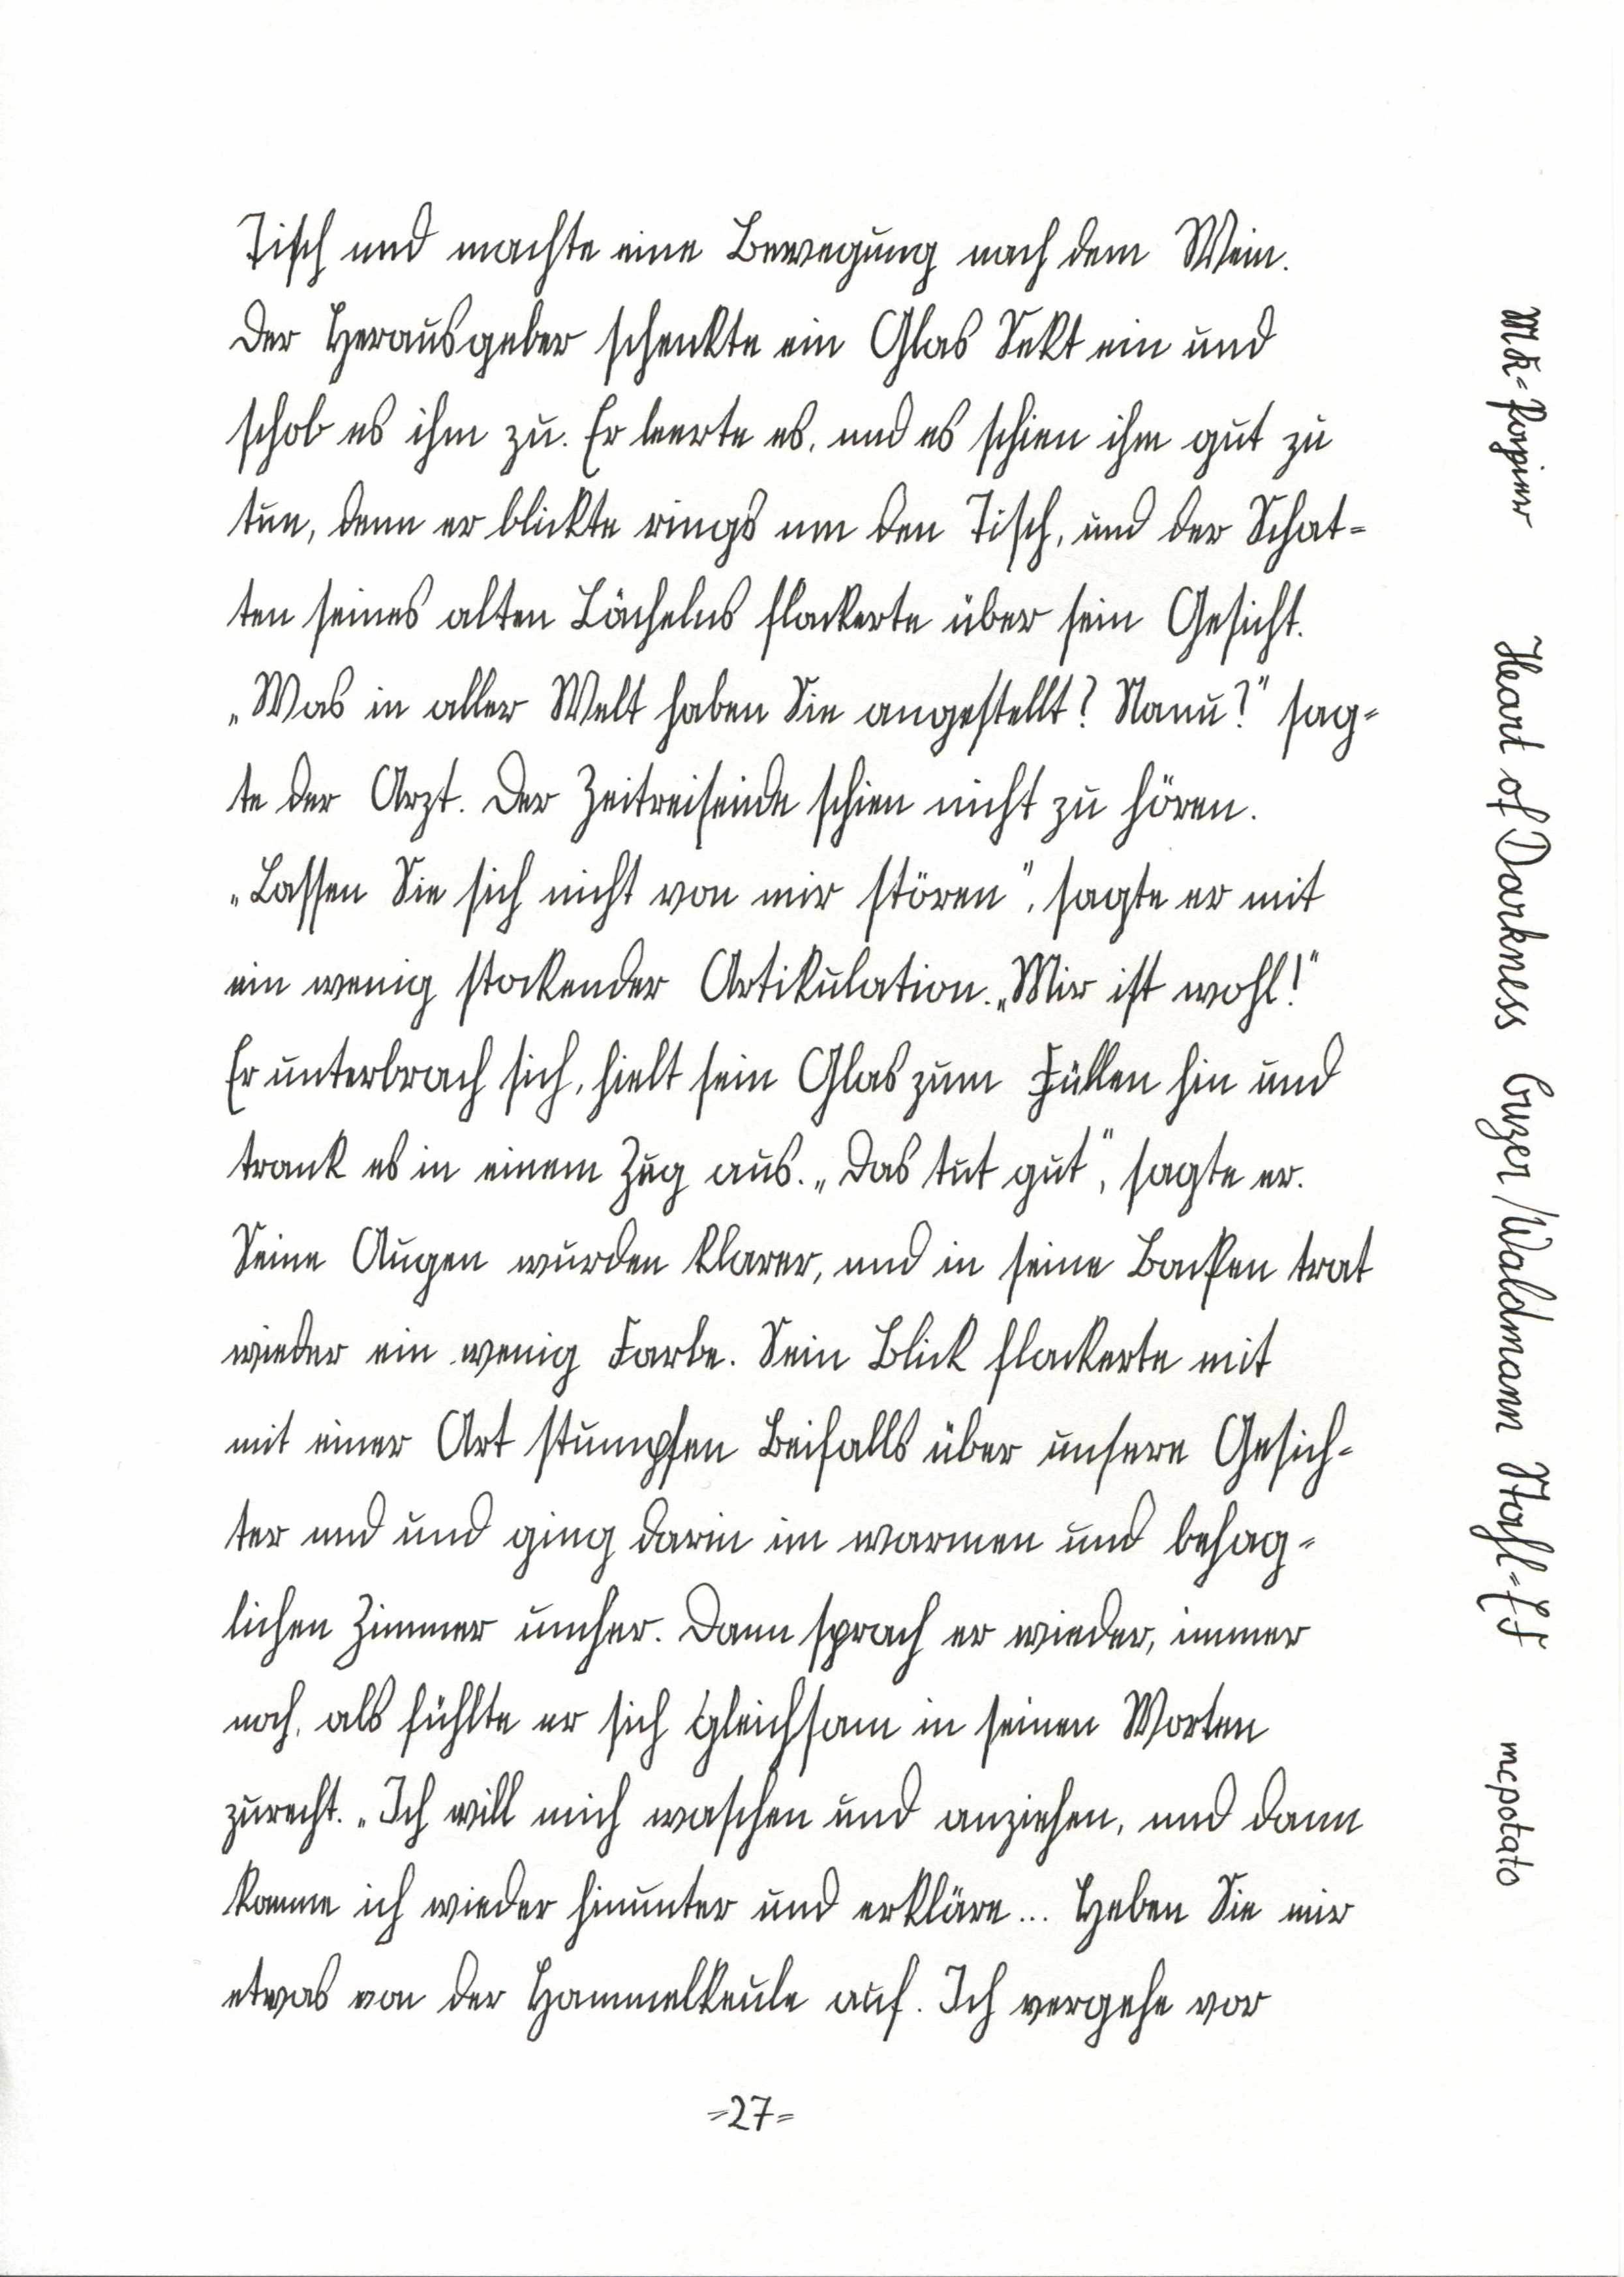 Tisch und machte eine Bewegung nach dem Wein.
Der Herausgeber schenkte ein Glas Sekt ein und
schob es ihm zu. Er leerte es, und es schien ihm gut zu
tun, denn er blickte rings um den Tisch, und der Schat-
ten seines alten Lächelns flackerte über sein Gesicht.
„Was in aller Welt haben Sie angestellt? Nanu?" sag-
te der Arzt. Der Zeitreisende schien nicht zu hören.
„Lassen Sie sich nicht von mir stören", sagte er mit
ein wenig stockender Artikulation. „Mir ist wohl!"
Er unterbrach sich, hielt sein Glas zum Füllen hin und
trank es in einem Zug aus. „Das tut gut", sagte er.
Seine Augen wurden klarer, und in seine Backen trat
wieder ein wenig Farbe. Sein Blick flackerte mit
mit einer Art stumpfen Beifalls über unsere Gesich-
ter und und ging darin im warmen und behag-
lichen Zimmer umher. Dann sprach er wieder, immer
noch, als fühlte er sich gleichsam in seinen Worten
zurecht. „Ich will mich waschen und anziehen, und dann
komme ich wieder hinunter und erkläre... Heben Sie mir
etwas von der Hammelkeule auf. Ich vergehe vor
=27=
MK=Papier
Heart of Darkness
Guzer/Waldmann
Stahl=EF
mcpotato